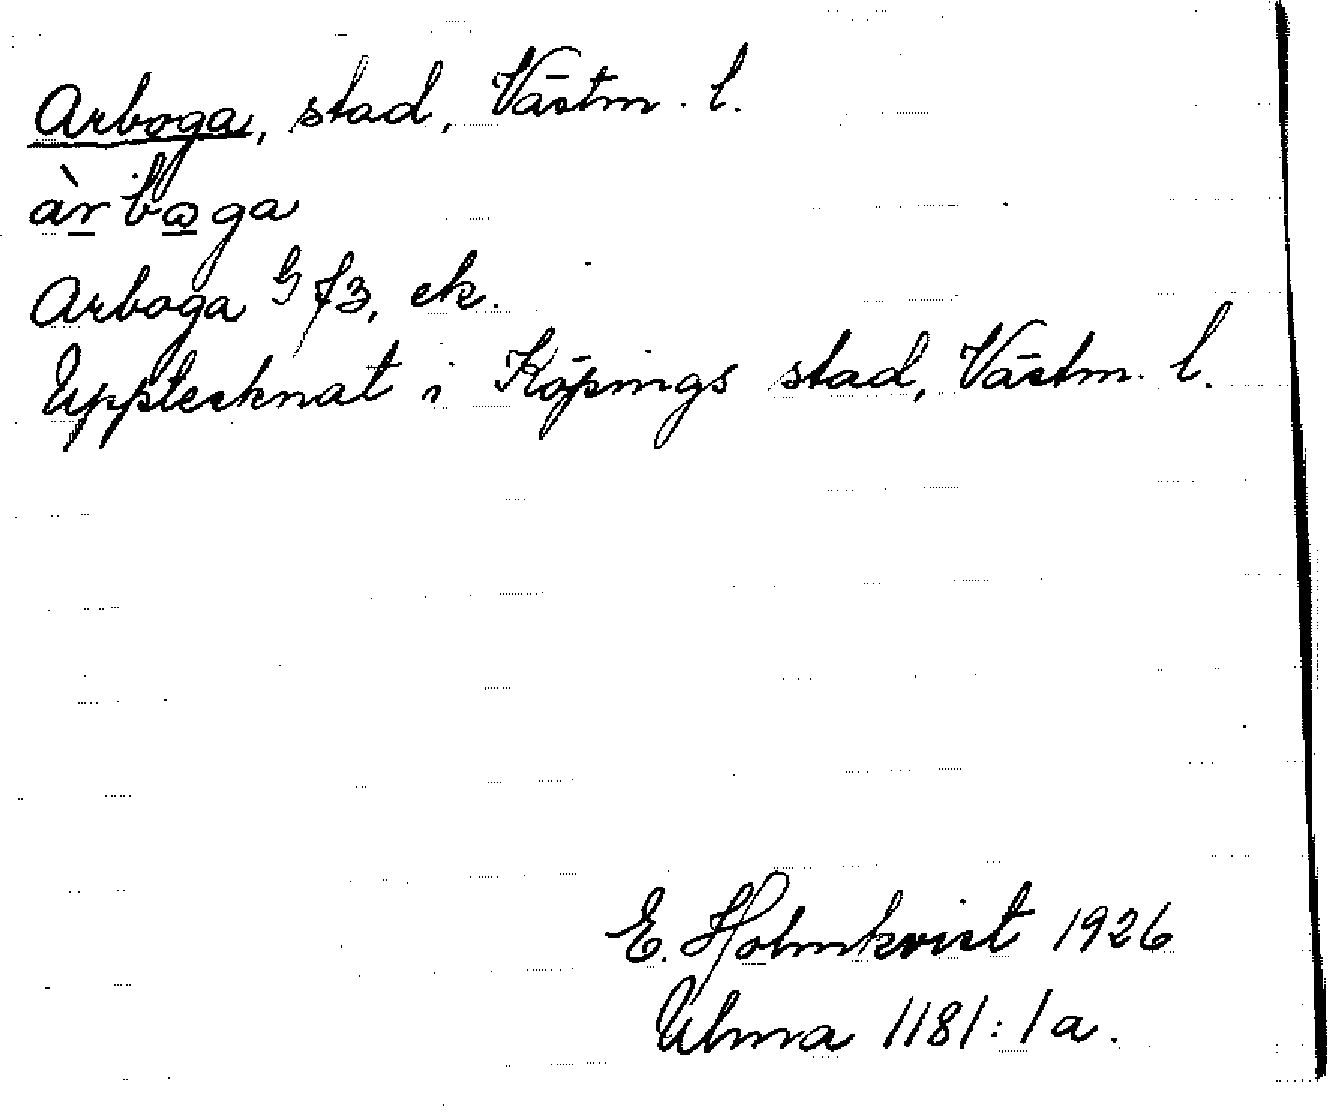 Arboga, stad, Västm. l.
àr boga
Arboga G f3, ek.
Upptecknat i Köpings stad, Västm. l.
E. Holmkvist 1926
Ulma 1181:1a.